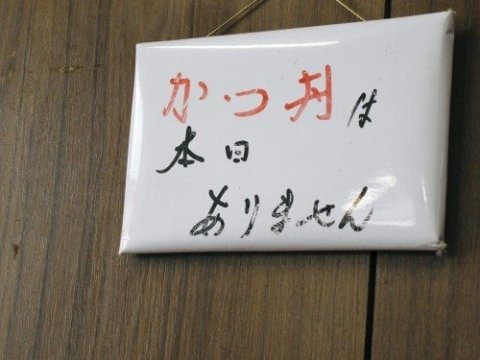 かつ丼は
本日
ありません